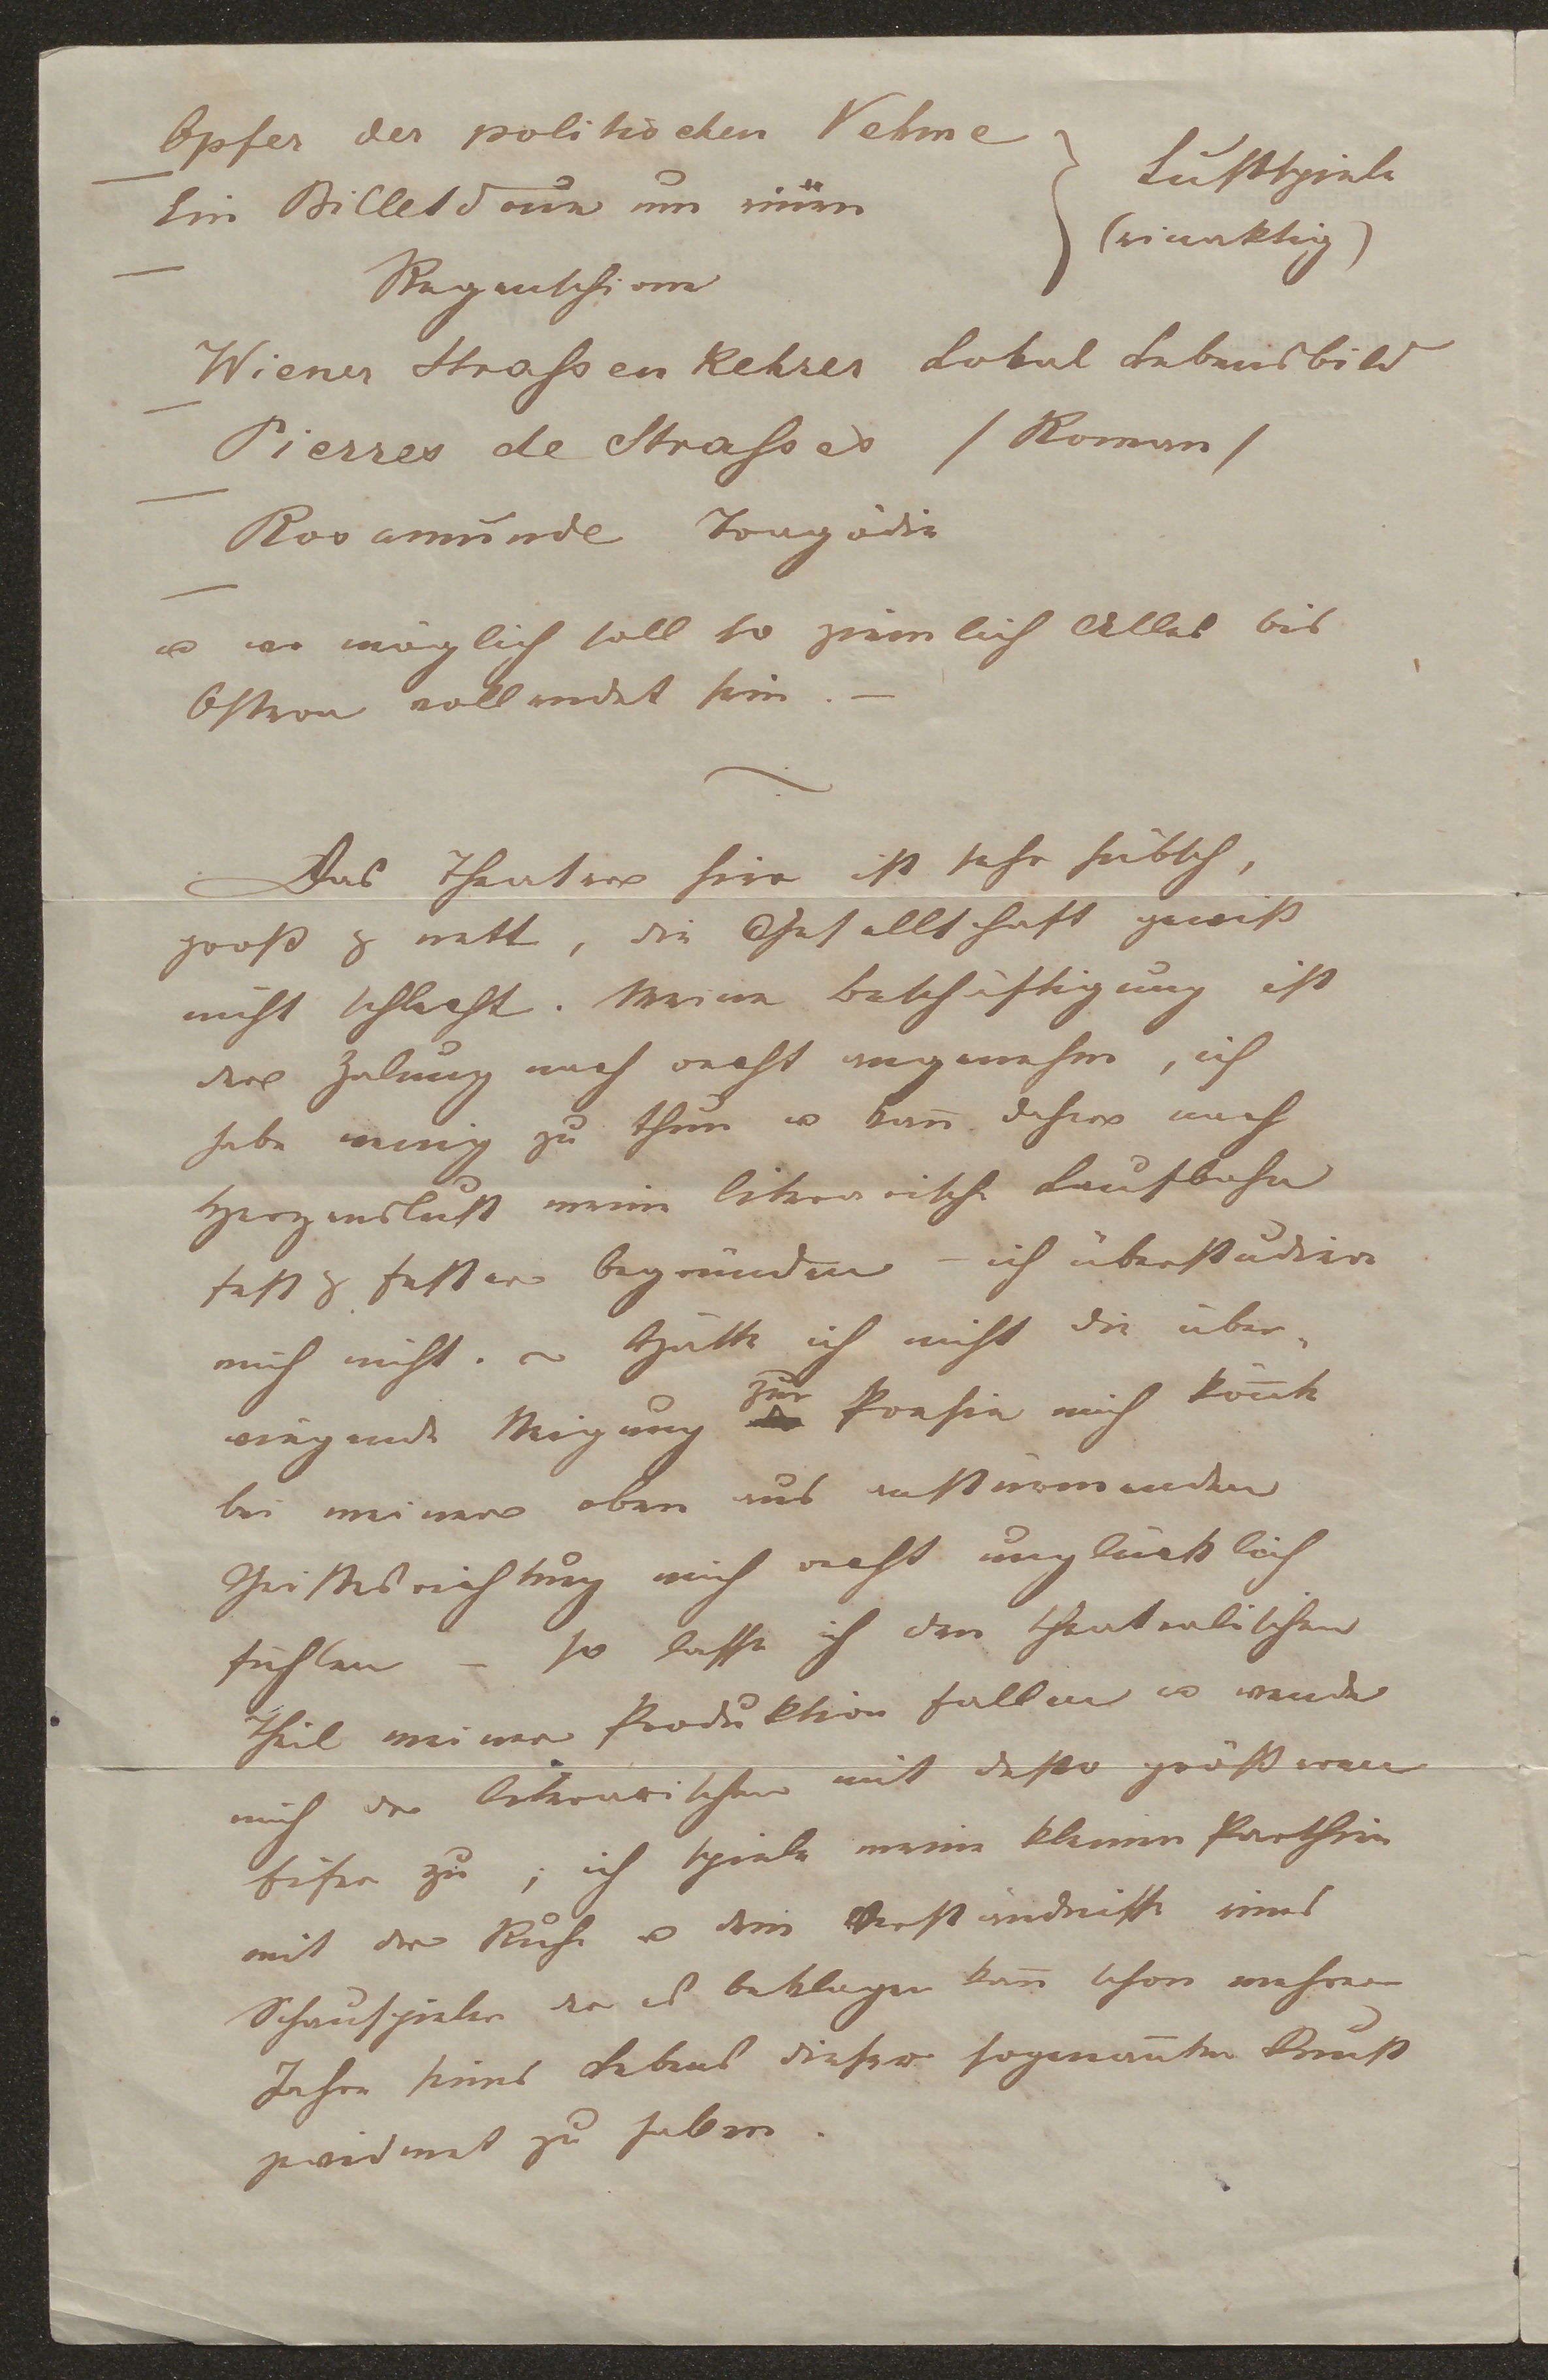 Opfer der politischen Vehme
Ein Billetdoux um einen
Regenschirm
Lustspiele
(einaktig)
Wiener Strassenkehrer Lokal Lebensbild
Pierres de Strasses / Roman /
Rosamunde Tragödie
u wo möglich soll so ziemlich Alles bis
Ostern vollendet sein. —
Das Theater hier ist sehr hübsch,
groß & nett, die Gesellschaft gewiß
nicht schlecht. Meine Beschäftigung ist
der Zalung nach recht angenehm, ich
habe wenig zu thun u kan̄ daher nach
Herzenslust meine literarische Laufbahn
fest & fester begründen – ich überstudiere
mich nicht. ~ Hätte ich nicht die über-
wiegende Neigung zur Poesie mich kön̄te
bei meiner oben aus anstürmenden
Geistesrichtung mich recht unglücklich
fühlen – so lasse ich den theatralischen
Theil meiner Produktion fallen u wende
mich der literarischen mit desto größeren
Eifer zu; ich spiele meine kleinen Parthien
mit der Ruhe u dem Verständnisse eines
Schauspieler der es beklagen kan̄ schon mehrere
Jahre seines Lebens dieser sogenan̄ten Kunst
gewidmet zu haben.